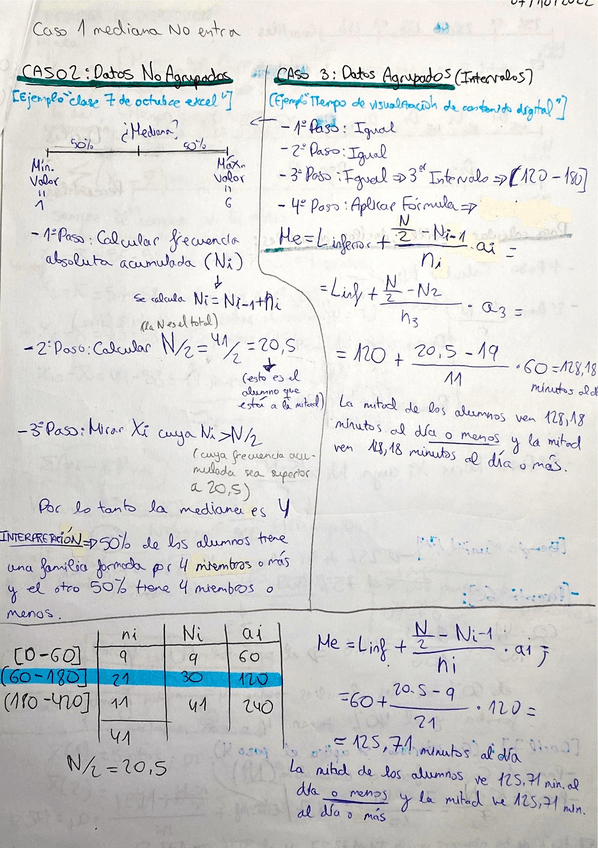 07/10/2022
Caso 1 mediana No entra
CASO 2: Datos No Agrupados
[Ejemplo "clase 7 de octubre excel"]
¿Mediana?
50% 50%
Mín. Valor
"
1
Máx. Valor
"
6
- 1º Paso: Calcular frecuencia
absoluta acumulada (Ni)
↓
Se calcula Ni = Ni-1 + ni
(la N es el total)
- 2º Paso: Calcular N/2 = 41/2 = 20,5
↓
(esto es el
alumno que
está a la mitad)
- 3º Paso: Mirar Xi cuya Ni > N/2
(cuya frecuencia acu-
mulada sea superior
a 20,5)
Por lo tanto la mediana es 4
INTERPRETACIÓN ⇒ 50% de los alumnos tiene
una familia formada por 4 miembros o más
y el otro 50% tiene 4 miembros o
menos.
CASO 3: Datos Agrupados (Intervalos)
[Ejemplo "Tiempo de visualización de contenido digital"]
- 1º Paso: Igual
- 2º Paso: Igual
- 3º Paso: Igual ⇒ 3er Intervalo ⇒ (120 - 180]
- 4º Paso: Aplicar Fórmula ⇒
Me = L inferior + (N/2 - Ni-1)/ni · ai =
= Linf + (N/2 - N2)/n3 · a3 =
= 120 + (20,5 - 19)/11 · 60 = 128,18
minutos al d
La mitad de los alumnos ven 128,18
minutos al día o menos y la mitad
ven 128,18 minutos al día o más.
ni Ni ai
[0-60] 9 9 60
(60-180] 21 30 120
(180-420] 11 41 240
41
N/2 = 20,5
Me = Linf + (N/2 - Ni-1)/ni · ai =
= 60 + (20.5 - 9)/21 · 120 =
= 125,71 minutos al día
La mitad de los alumnos ve 125,71 min. al
día o menos y la mitad ve 125,71 min.
al día o más